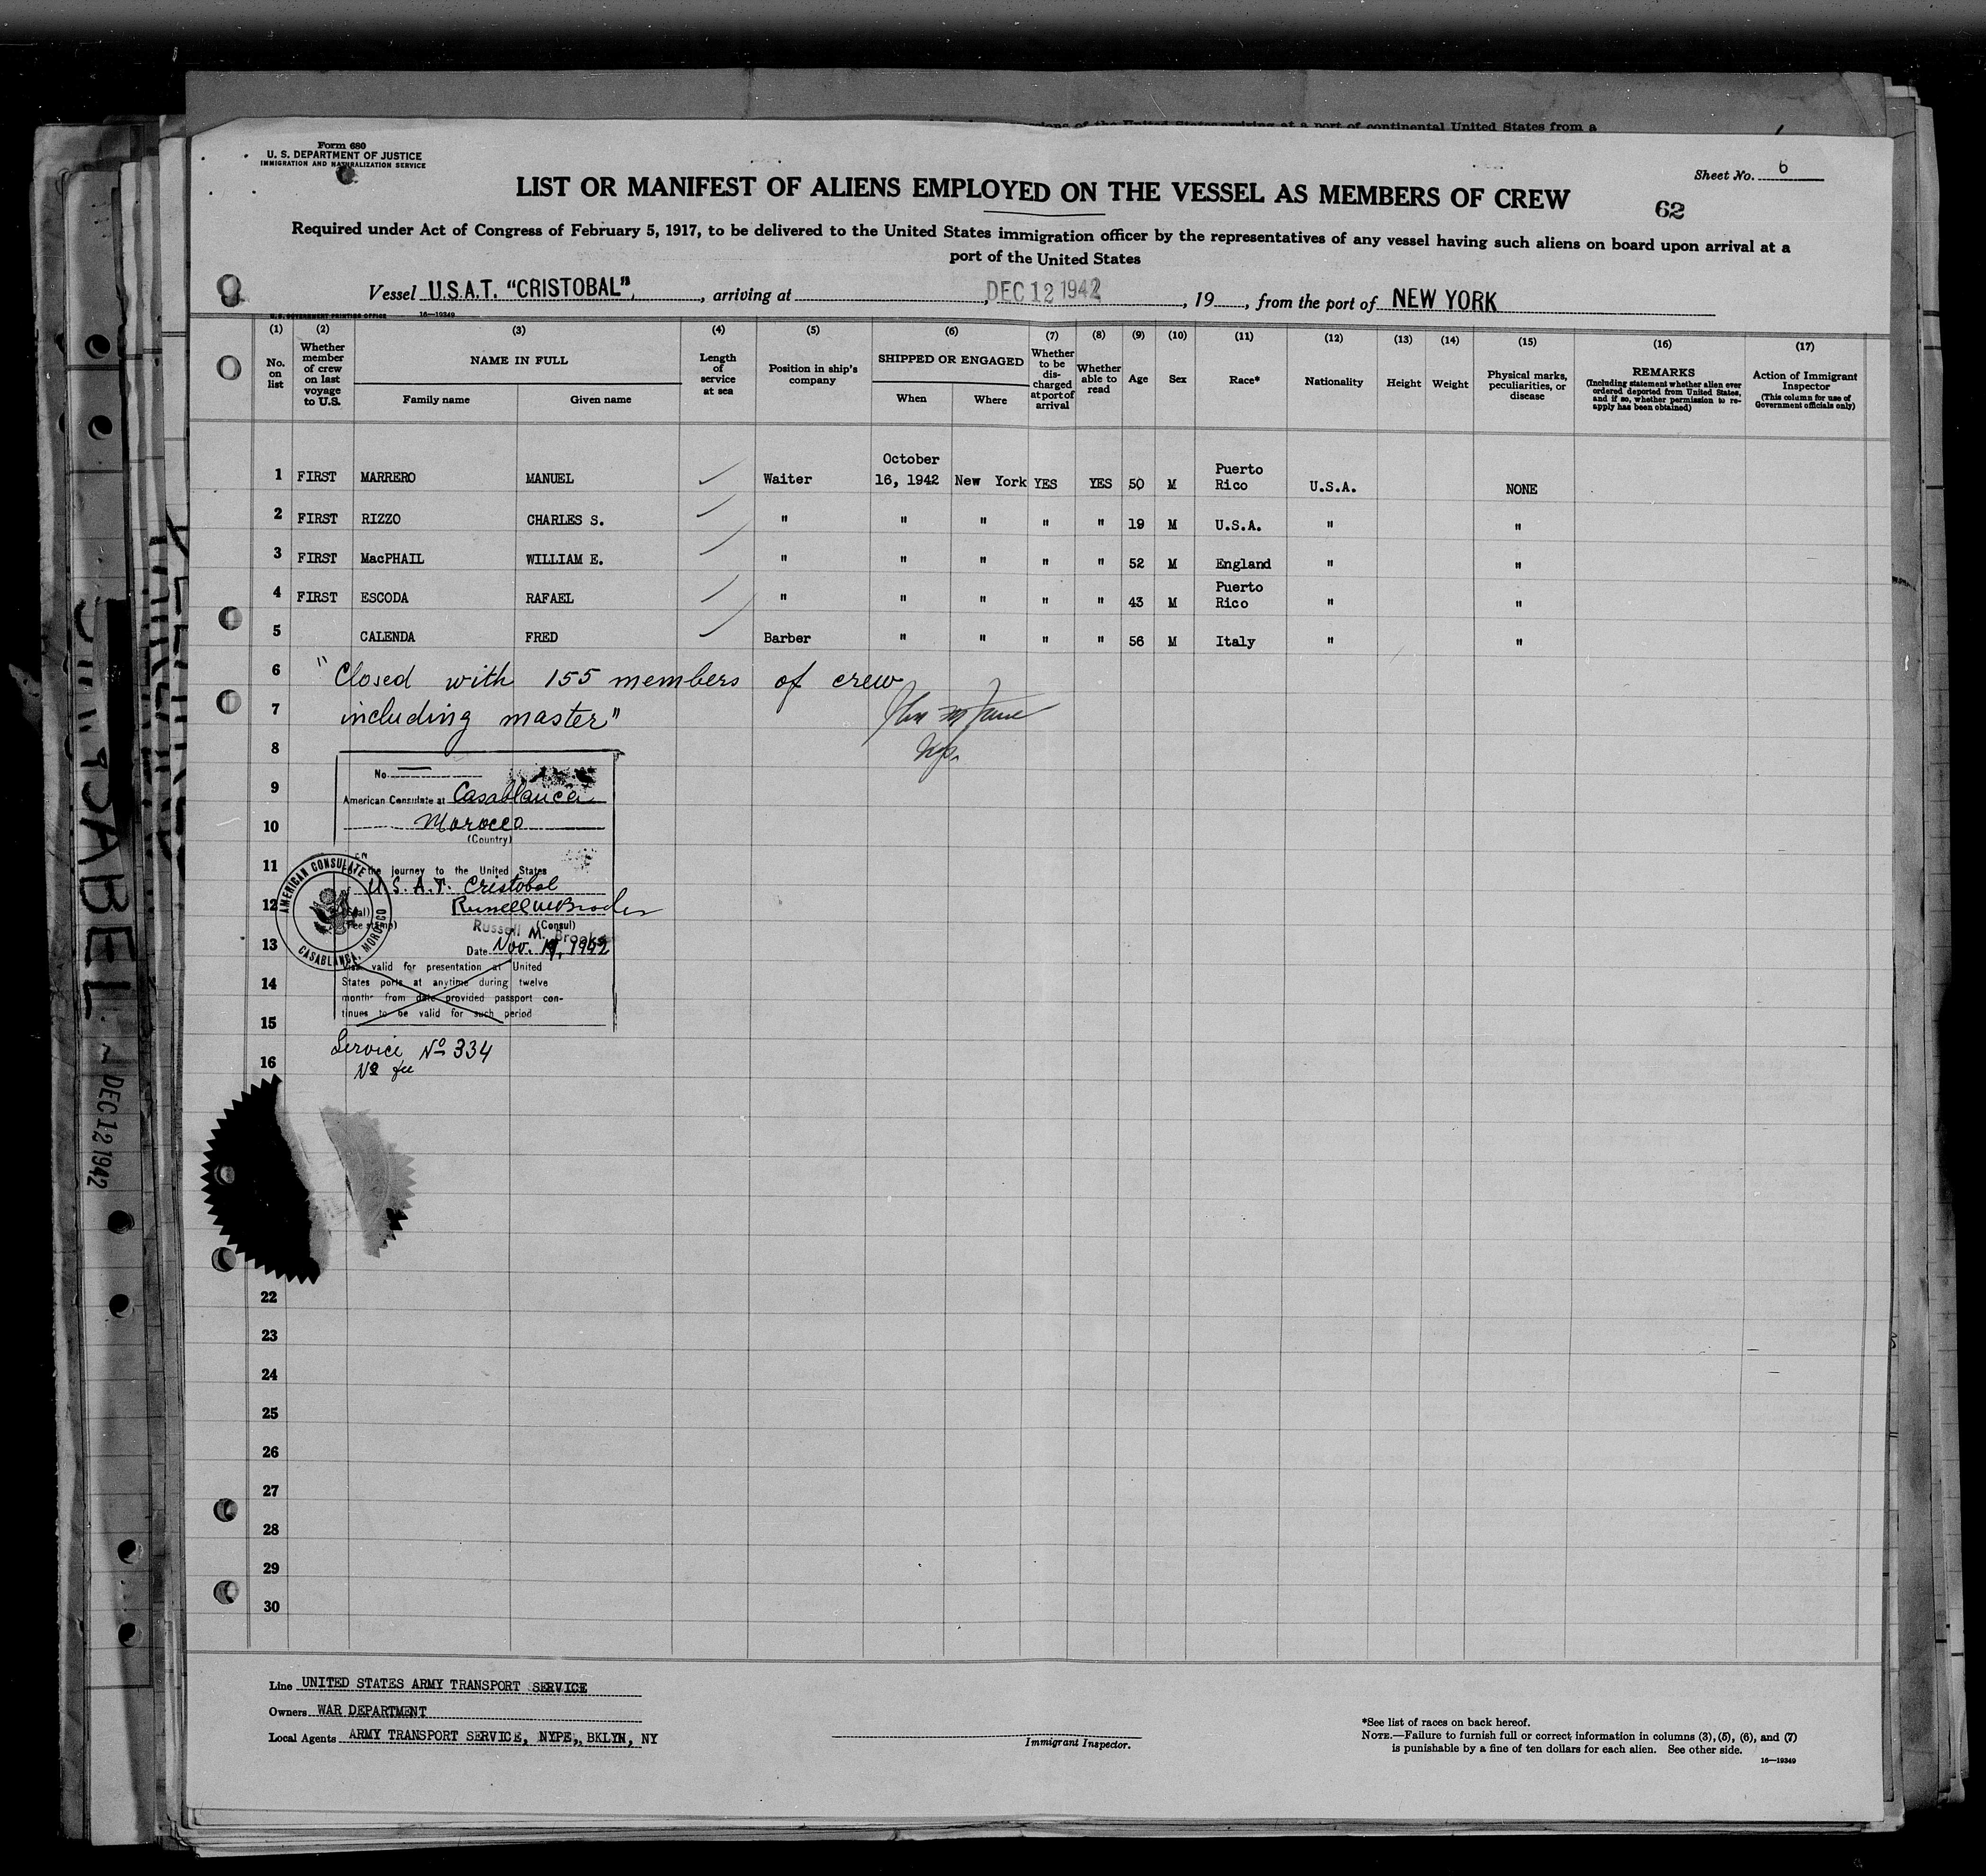 sions of the United States arriving at a port of continental United States from a
Form 680
U. S. DEPARTMENT OF JUSTICE
IMMIGRATION AND NATURALIZATION SERVICE
Sheet No. 6
LIST OR MANIFEST OF ALIENS EMPLOYED ON THE VESSEL AS MEMBERS OF CREW
62
Required under Act of Congress of February 5, 1917, to be delivered to the United States immigration officer by the representatives of any vessel having such aliens on board upon arrival at a
port of the United States
Vessel U.S.A.T. "CRISTOBAL", arriving at DEC 12 1942, 19, from the port of NEW YORK
U. S. GOVERNMENT PRINTING OFFICE 16—19349
(1) (2) (3) (4) (5) (6) (7) (8) (9) (10) (11) (12) (13) (14) (15) (16) (17)
No. on list
Whether member of crew on last voyage to U.S.
NAME IN FULL
Family name Given name
Length of service at sea
Position in ship's company
SHIPPED OR ENGAGED
When Where
Whether to be discharged at port of arrival
Whether able to read
Age
Sex
Race*
Nationality
Height
Weight
Physical marks, peculiarities, or disease
REMARKS
(Including statement whether alien ever ordered deported from United States, and if so, whether permission to re-apply has been obtained)
Action of Immigrant Inspector
(This column for use of Government officials only)
1 FIRST MARRERO MANUEL Waiter October 16, 1942 New York YES YES 50 M Puerto Rico U.S.A. NONE
2 FIRST RIZZO CHARLES S. " " " " " 19 M U.S.A. " "
3 FIRST MacPHAIL WILLIAM E. " " " " " 52 M England " "
4 FIRST ESCODA RAFAEL " " " " " 43 M Puerto Rico " "
5 CALENDA FRED Barber " " " " 56 M Italy " "
6 "Closed with 155 members of crew
7 including master"
8
No.
9 American Consulate at Casablanca
10 Morocco
(Country)
11 the journey to the United States
U.S.A.T. Cristobal
12 Russell M Brooks
(Consul)
Russell M. Brooks
13 Date Nov. 19, 1942
AMERICAN CONSULATE
CASABLANCA, MOROCCO
Visa valid for presentation at United
14 States ports at anytime during twelve
months from date provided passport con-
tinues to be valid for such period
15
Service No 334
16 No fee
22
23
24
25
26
27
28
29
30
Line UNITED STATES ARMY TRANSPORT SERVICE
Owners WAR DEPARTMENT
Local Agents ARMY TRANSPORT SERVICE, NYPE, BKLYN, NY
Immigrant Inspector.
*See list of races on back hereof.
NOTE.—Failure to furnish full or correct information in columns (3), (5), (6), and (7)
is punishable by a fine of ten dollars for each alien. See other side.
16—19349
DEC 12 1942